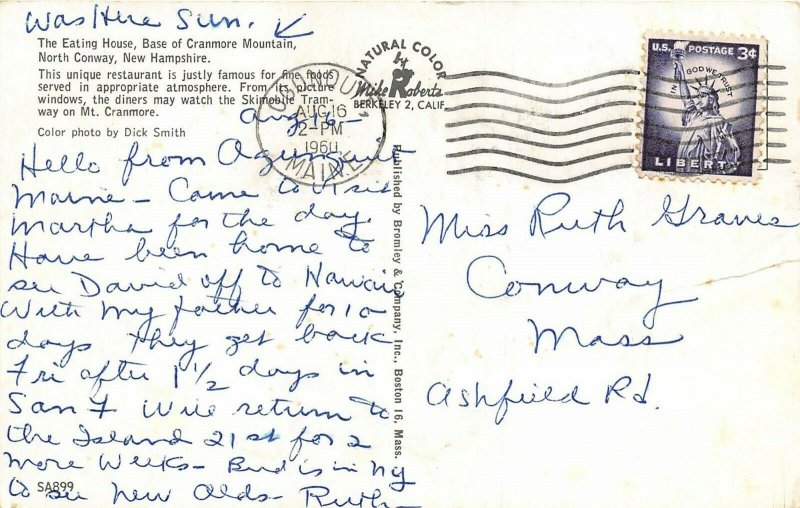 Was Here Sun.
The Eating House, Base of Cranmore Mountain,
North Conway, New Hampshire.
This unique restaurant is justly famous for fine foods
served in appropriate atmosphere. From its picture
windows, the diners may watch the Skimobile Tram-
way on Mt. Cranmore.
Color photo by Dick Smith
Aug 16 -
Hello from Ogunquit
Maine - Came to visit
Martha for the day.
Have been home to
see David off to Hawaii
with my father for 10
days They get back
Fri after 1 1/2 days in
San F Will return to
the Island 21st for 2
more weeks - Bud is in NY
to see new Olds - Ruth -
SA899
Published by Bromley & Company, Inc., Boston 16, Mass.
NATURAL COLOR
by
Mike Roberts
BERKELEY 2, CALIF.
OGUNQUIT
AUG 16
2-PM
1960
MAINE
U.S. POSTAGE 3¢
IN GOD WE TRUST
LIBERTY
Miss Ruth Graves
Conway
Mass
Ashfield Rd.